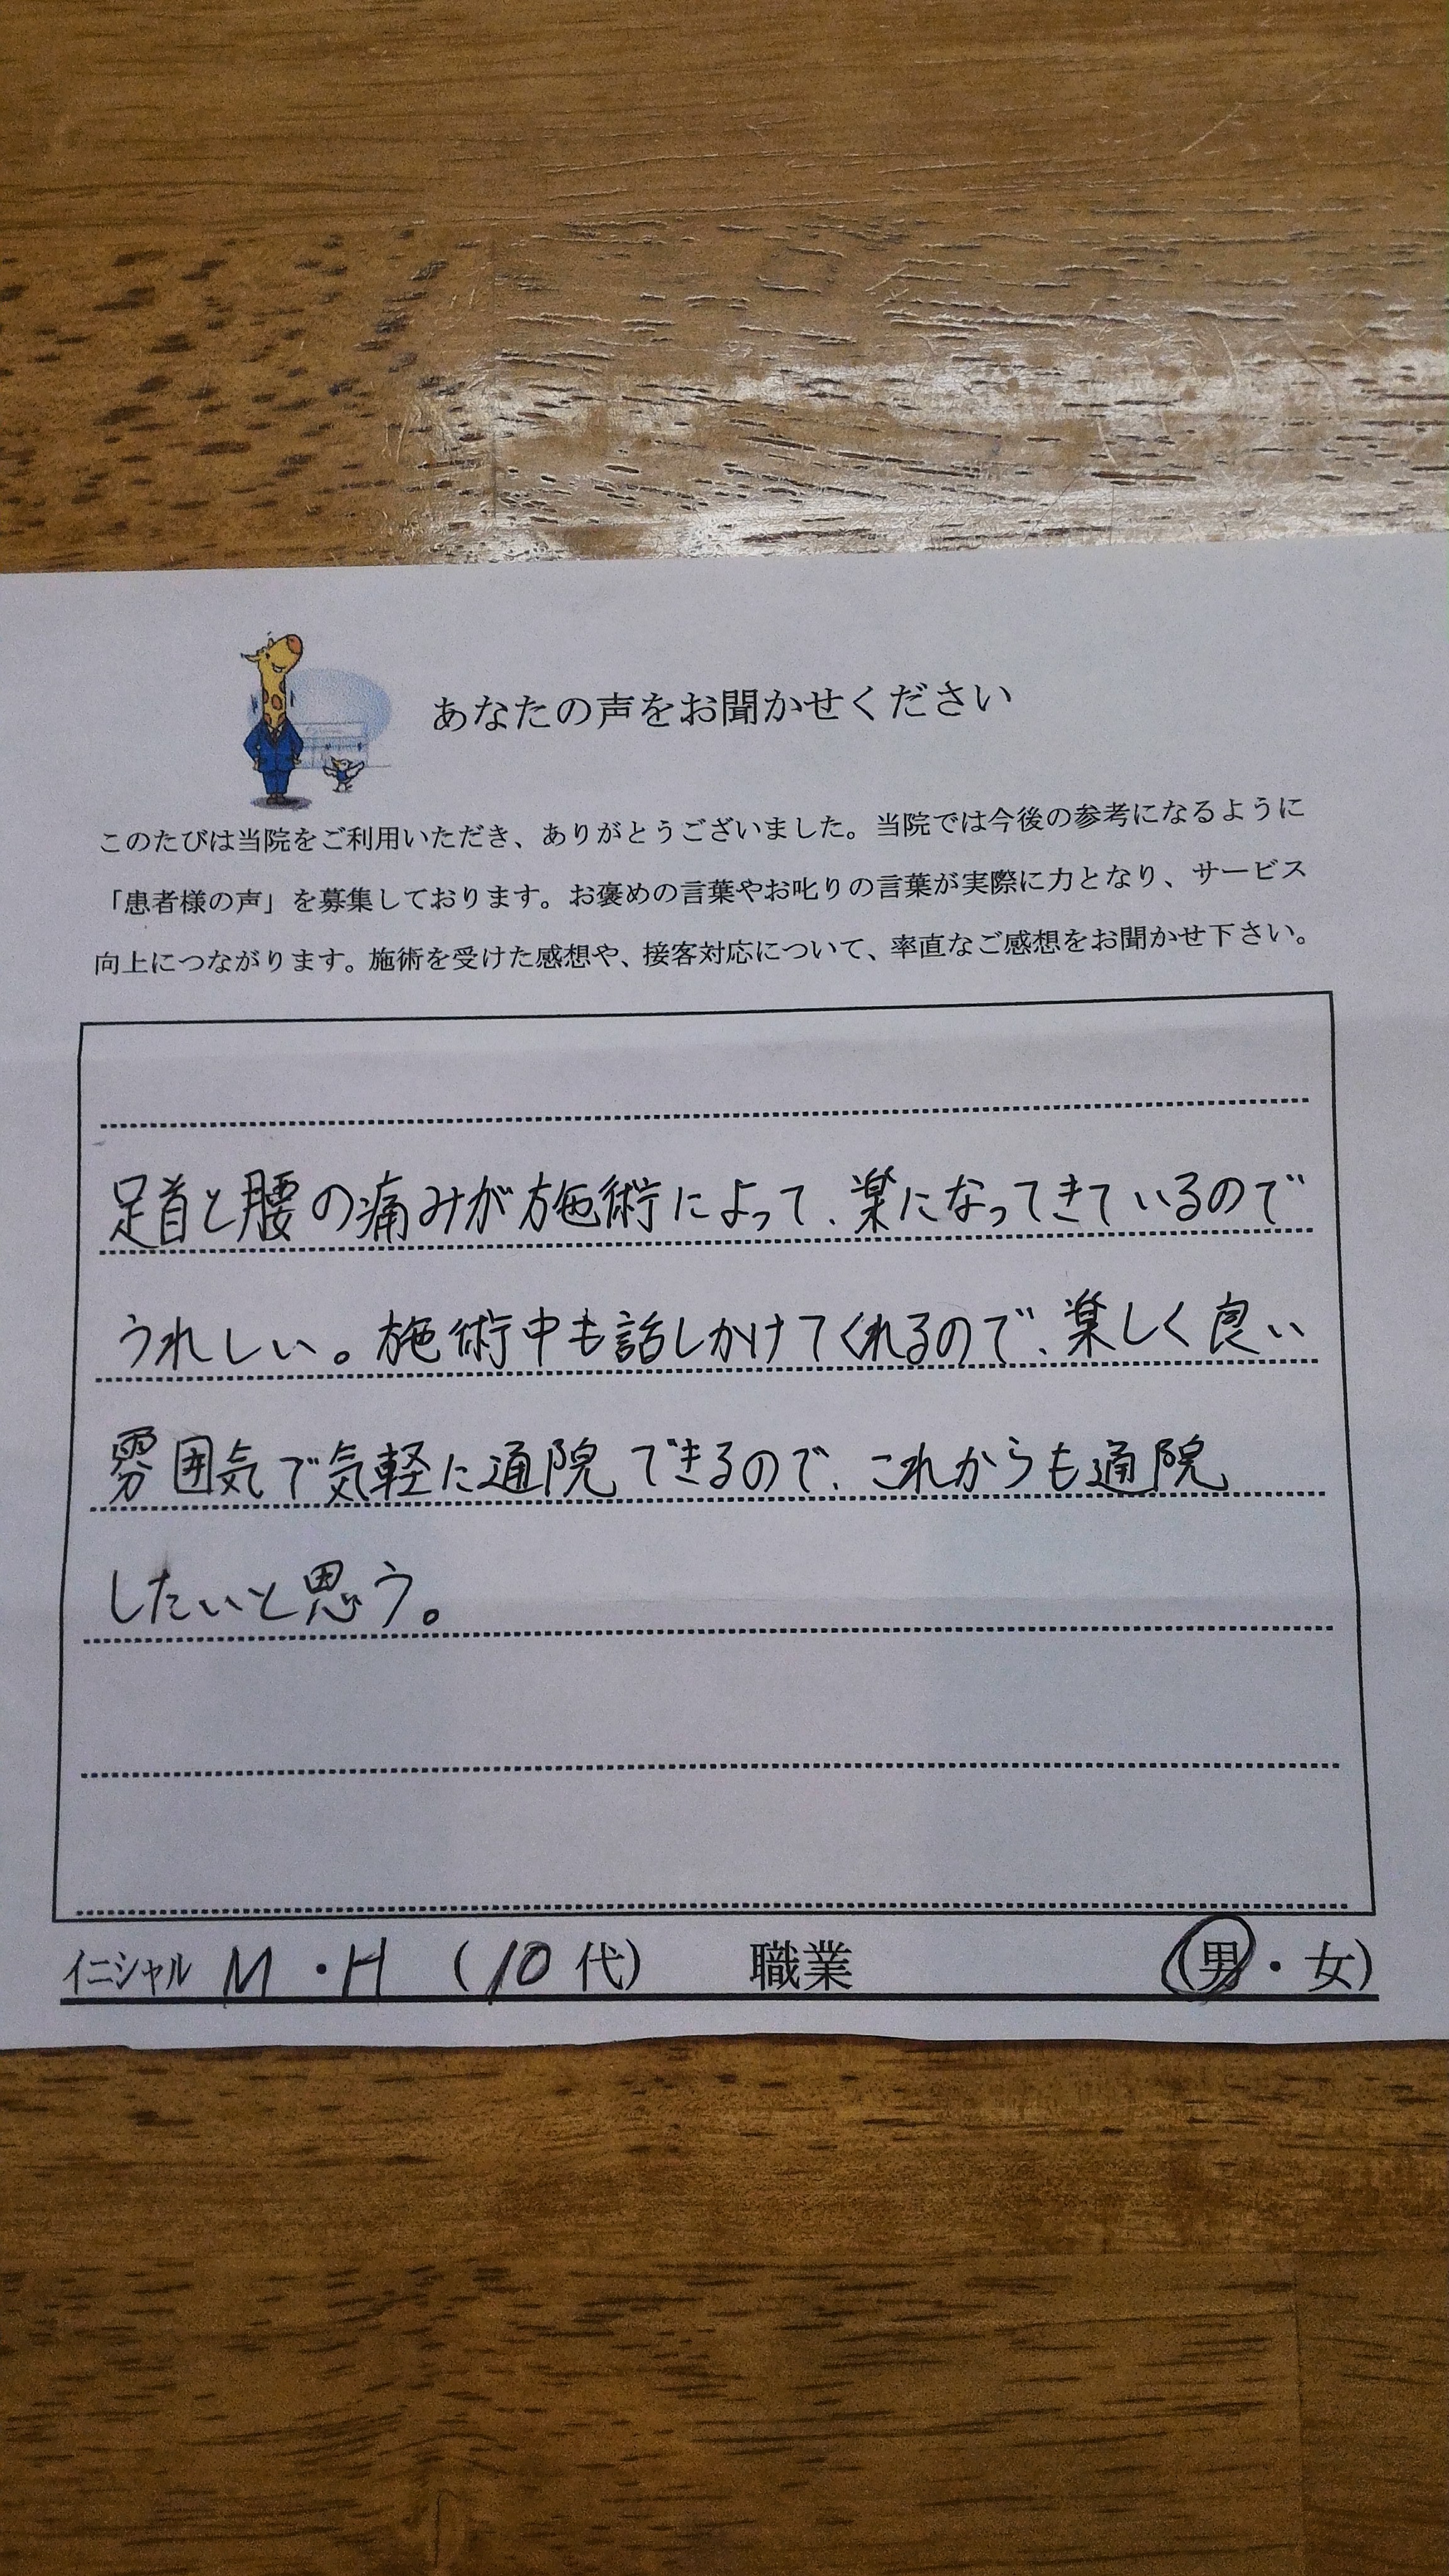 あなたの声をお聞かせください
このたびは当院をご利用いただき、ありがとうございました。当院では今後の参考になるように
「患者様の声」を募集しております。お褒めの言葉やお叱りの言葉が実際に力となり、サービス
向上につながります。施術を受けた感想や、接客対応について、率直なご感想をお聞かせ下さい。
足首と腰の痛みが施術によって、楽になってきているので
うれしい。施術中も話しかけてくれるので、楽しく良い
雰囲気で気軽に通院できるので、これからも通院
したいと思う。
イニシャル M・H (10代) 職業 (男・女)